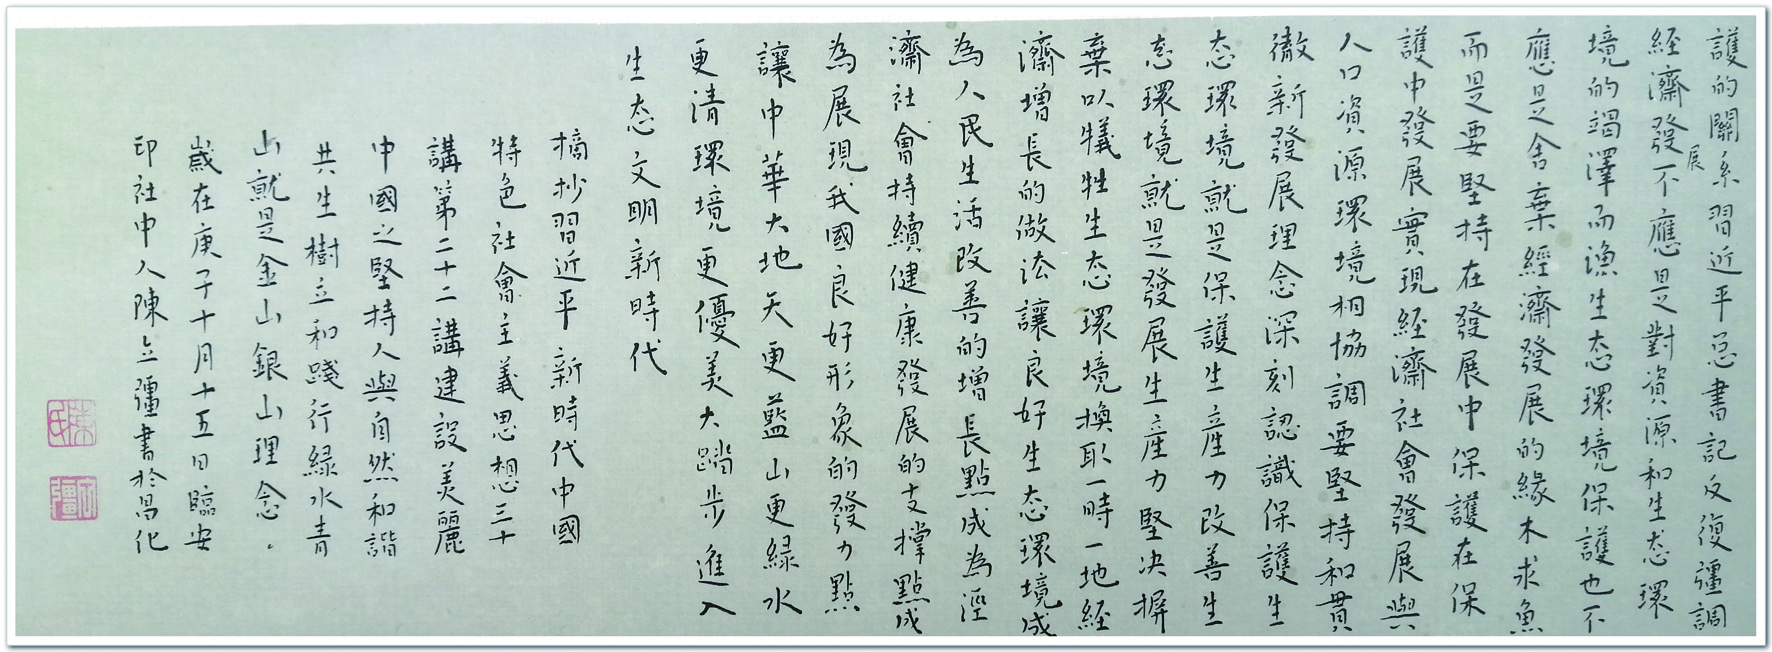 護的關系習近平总書記反復彊調
経濟發展不應是對資源和生态環
境的竭澤而漁生态環境保護也不
應是舍棄經濟發展的緣木求魚
而是要堅持在發展中保護在保
護中發展實現経濟社會發展與
人口資源環境相協調要堅持和貫
徹新發展理念深刻認識保護生
态環境就是保護生產力改善生
态環境就是發展生產力堅决摒
棄以犠牲生态環境換取一時一地経
濟增長的做法讓良好生态環境成
為人民生活改善的增長點成為経
濟社會持續健康發展的支撑點成
為展現我國良好形象的發力點
讓中華大地天更藍山更緑水
更清環境更優美大踏步進入
生态文明新時代
摘抄習近平新時代中國
特色社會主義思想三十
講第二十二講建設美麗
中國之堅持人與自然和諧
共生樹立和踐行緑水青
山就是金山銀山理念.
歲在庚子十月十五日臨安
印社中人陳立彊書於昌化